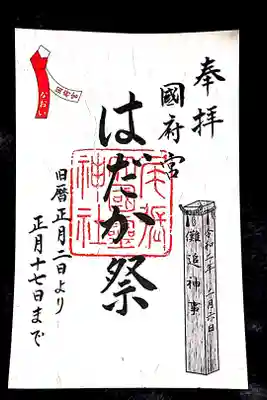 奉拝
國府宮
はだか祭
尾張
大國霊
神社
旧暦正月二日より
正月十七日まで
儺追神事
なおい